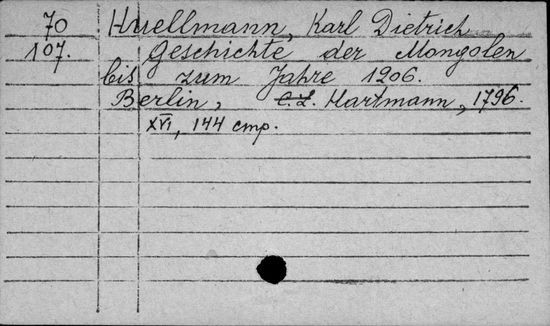 70 Huellmann, Karl Dietrich
107. Geschichte der Mongolen
bis zum Jahre 1206.
Berlin, C.L. Hartmann, 1796.
XVI, 144 стр.